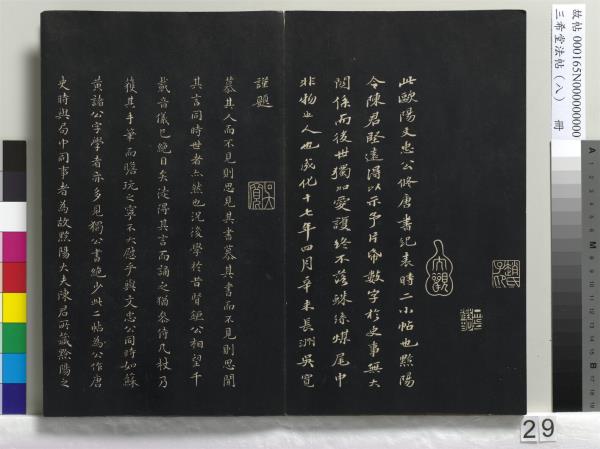 此歐陽文忠公修唐書紀表時二小帖也黟陽
令陳君堅遠得以示予片帋數字於史事無大
關係而後世獨加愛護終不落蛛絲煤尾中
非物也人也成化十七年四月辛未長洲吳寬
謹題
慕其人而不見則思見其書慕其書而不見則思聞
其言同時世者亦然也況後學於昔賢鉅公相望千
載音儀已絕目矣徒得其言而誦之猶參侍几杖乃
獲其手筆而瞻玩之寧不大慰乎與文忠公同時如蘇
黃諸公字學者亦多見獨公書絕少此二帖為公作唐
史時與局中同事者為故黟陽大夫陳君所藏黟陽之
故帖 000165N000000000
三希堂法帖(八) 冊
29